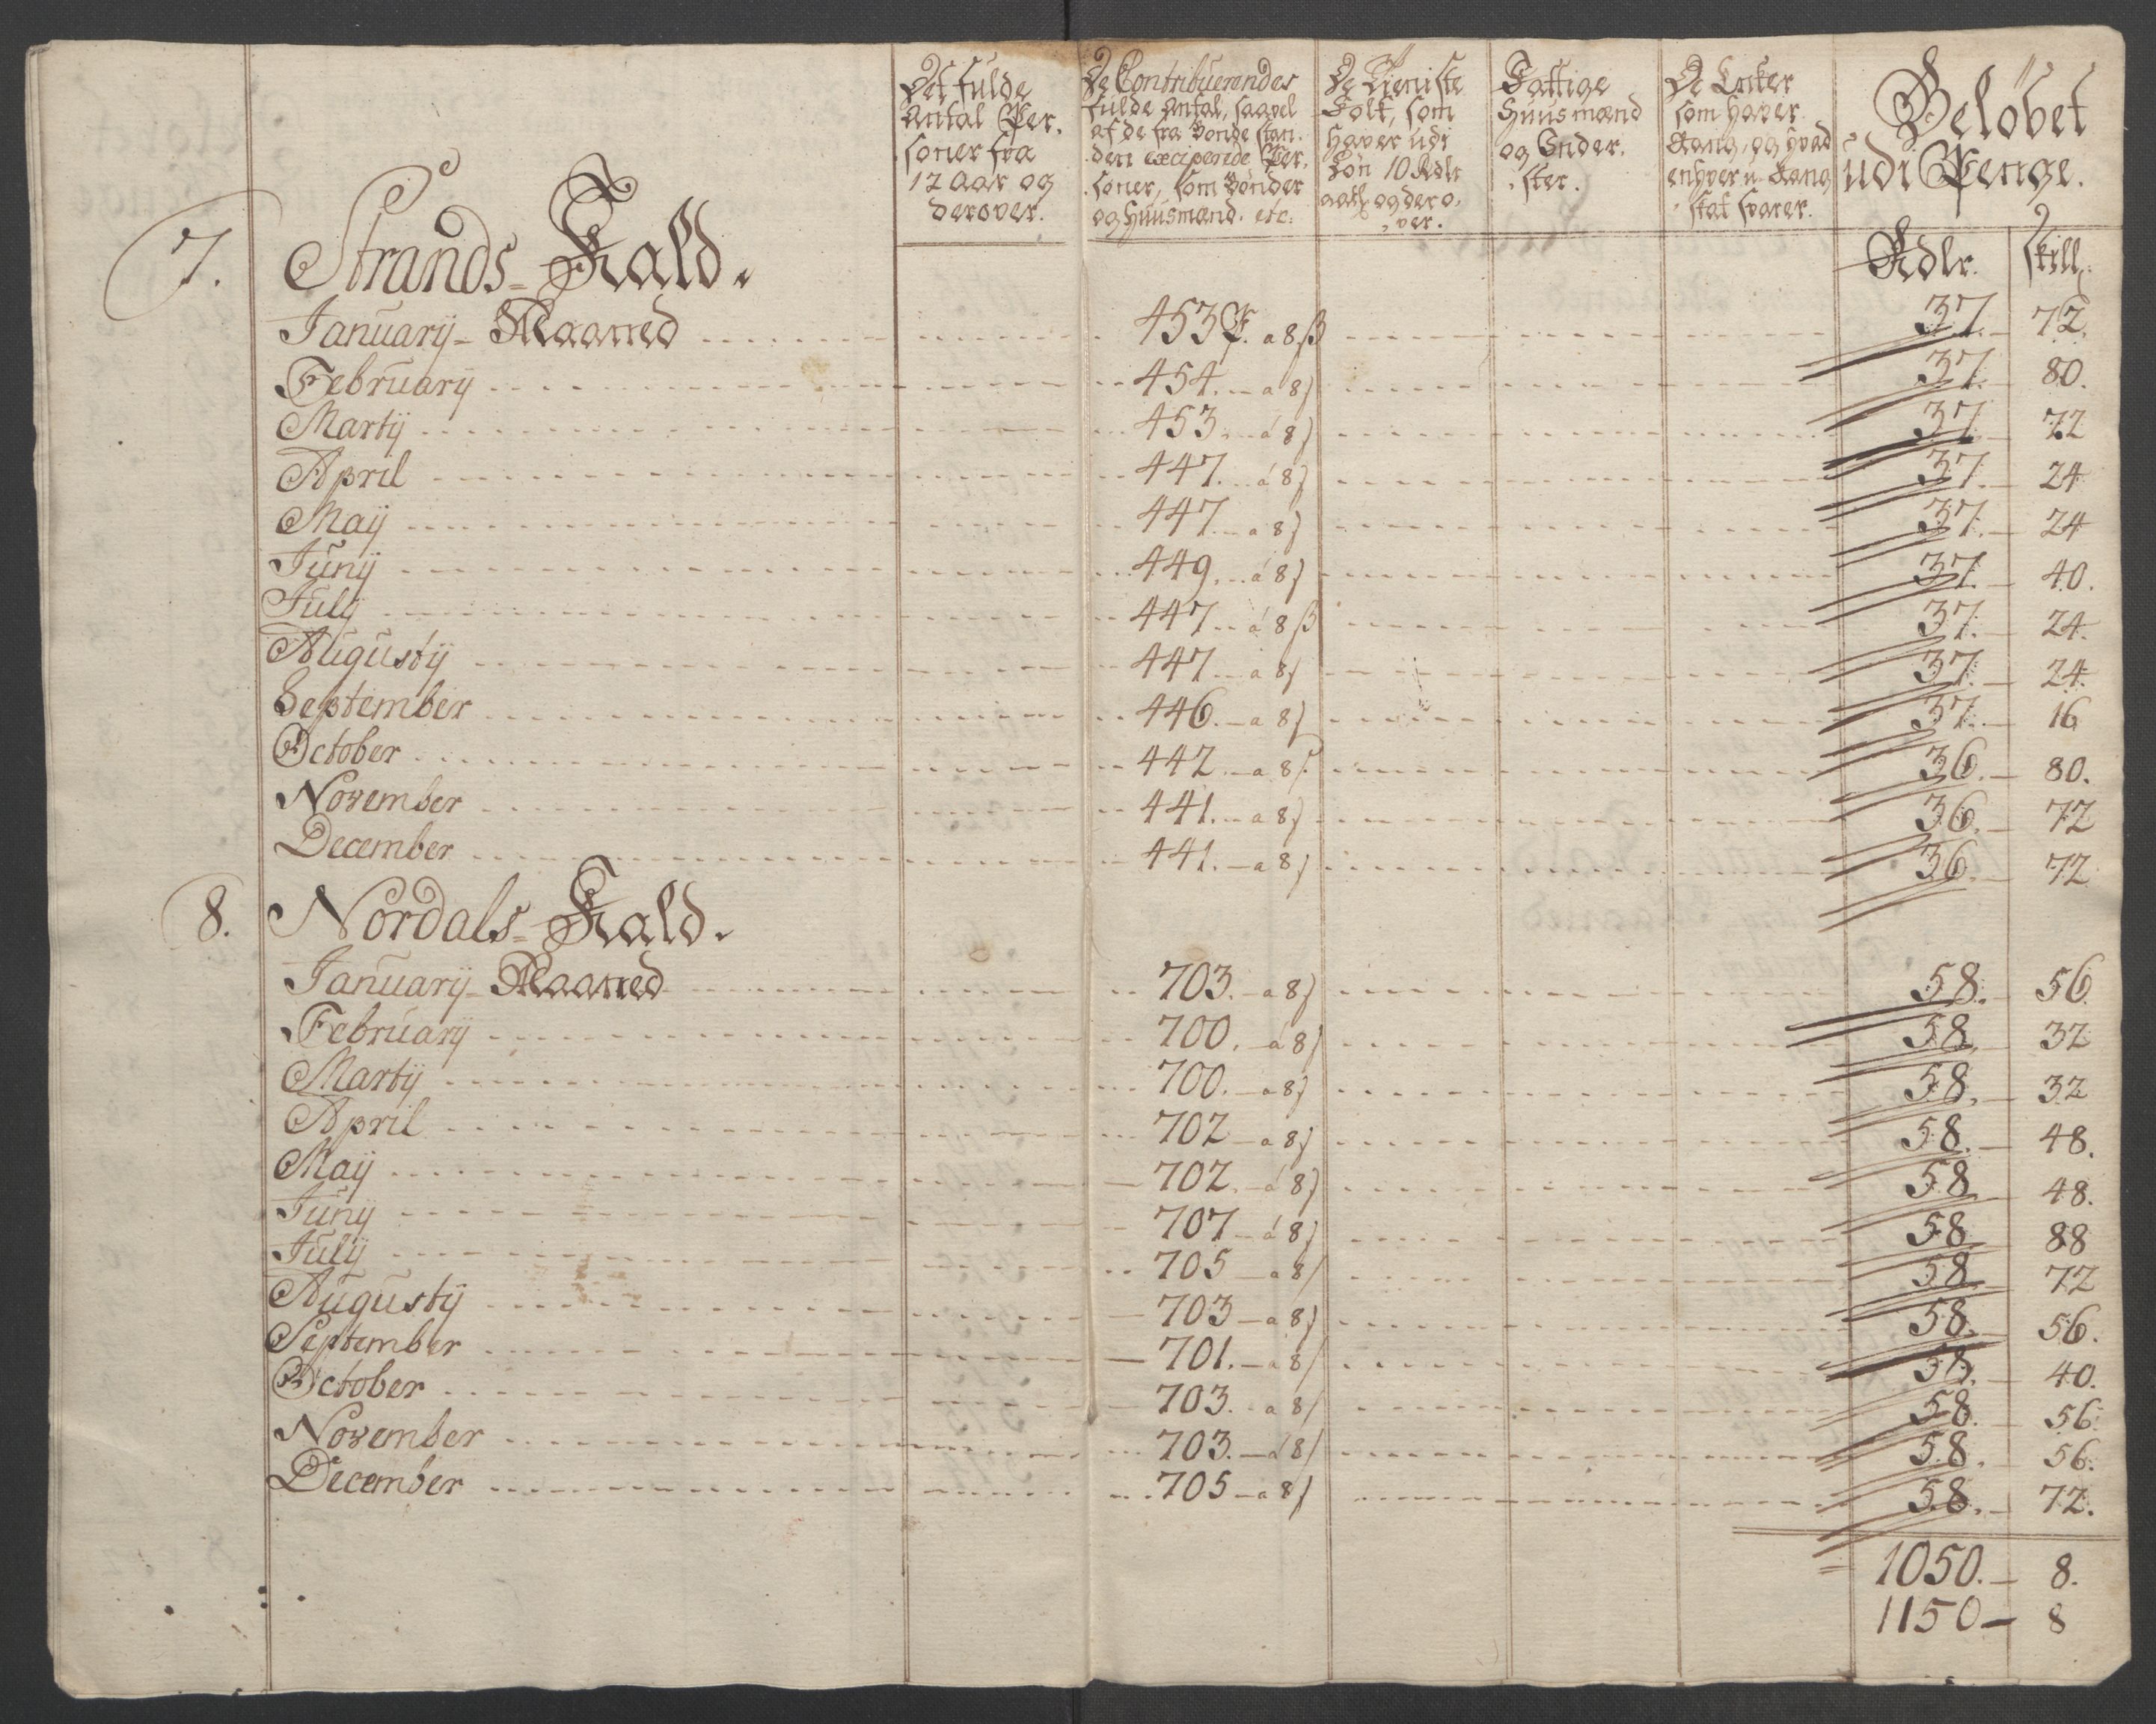 Det fulde
Antal Per-
soner fra
12 Aar og
derover.
De Contribuerendes
fulde Antal, saavel
af de fra Bonde Stan-
den exciperede Per-
soner, som Bønder
og Huusmænd. etc:
De Tieniste
Folk, som
haver udi
Løn 10 Rdlr
aarl: og dero-
ver.
Fattige
Huusmænd
og Inder-
ster.
De Enker
som haver
Rang, og hvad
enhver u. Rang
skat svarer.
Beløbet
udi Penge.
Rdlr. skill:
7. Strands-Kald.
January-Maaned 453 P. a 8 β 37. 72.
February 454. a 8 β 37. 80.
Martij 453. á 8 β 37. 72
April 447. á 8 β 37. 24
Maij 447. a 8 β 37. 24
Junij 449. á 8 β 37. 40.
Julij 447. á 8 β 37. 24.
Augustij 447 a 8 β 37. 24.
September 446. a 8 β 37. 16
October 442. a 8 β 36. 80.
November 441. a 8 β 36. 72
December 441. a 8 β 36. 72
8. Nordals-Kald.
January-Maaned 703. a 8 β 58. 56.
February 700. á 8 β 58. 32
Martij 700. a 8 β 58. 32
April 702 a 8 β 58. 48.
Maij 702. á 8 β 58 48.
Junij 707 á 8 β 58 88
Julij 705 a 8 β 58 72
Augustij 703 a 8 β 58. 56.
September 701. a 8 β 58. 40.
October 703. a 8 β 58. 56.
November 703. á 8 β 58. 56.
December 705 a 8 β 58. 72.
1050. 8.
1150 8